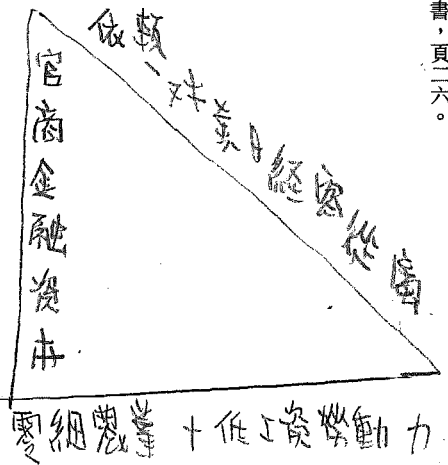 書，頁二六。
依賴－对美日經濟從屬
官商金融資本
零細農業＋低工資勞動力